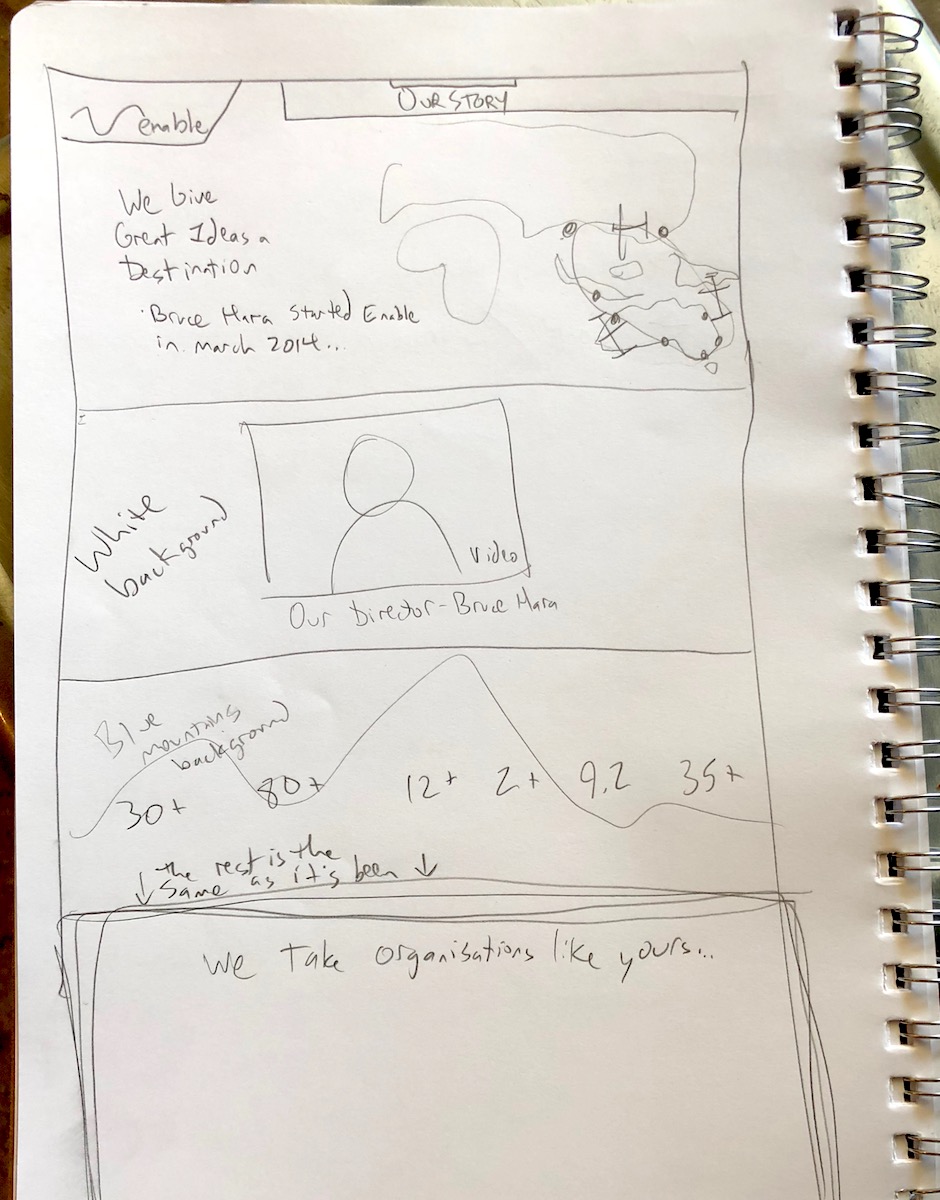 enable
OUR STORY
We Give
Great Ideas a
Destination
· Bruce Mara Started Enable
in March 2014...
White
background
Video
Our Director - Bruce Mara
Blue
mountains
background
30+ 80+ 12+ 2+ 9.2 35+
↓ the rest is the
same as it's been ↓
We Take organisations like yours...